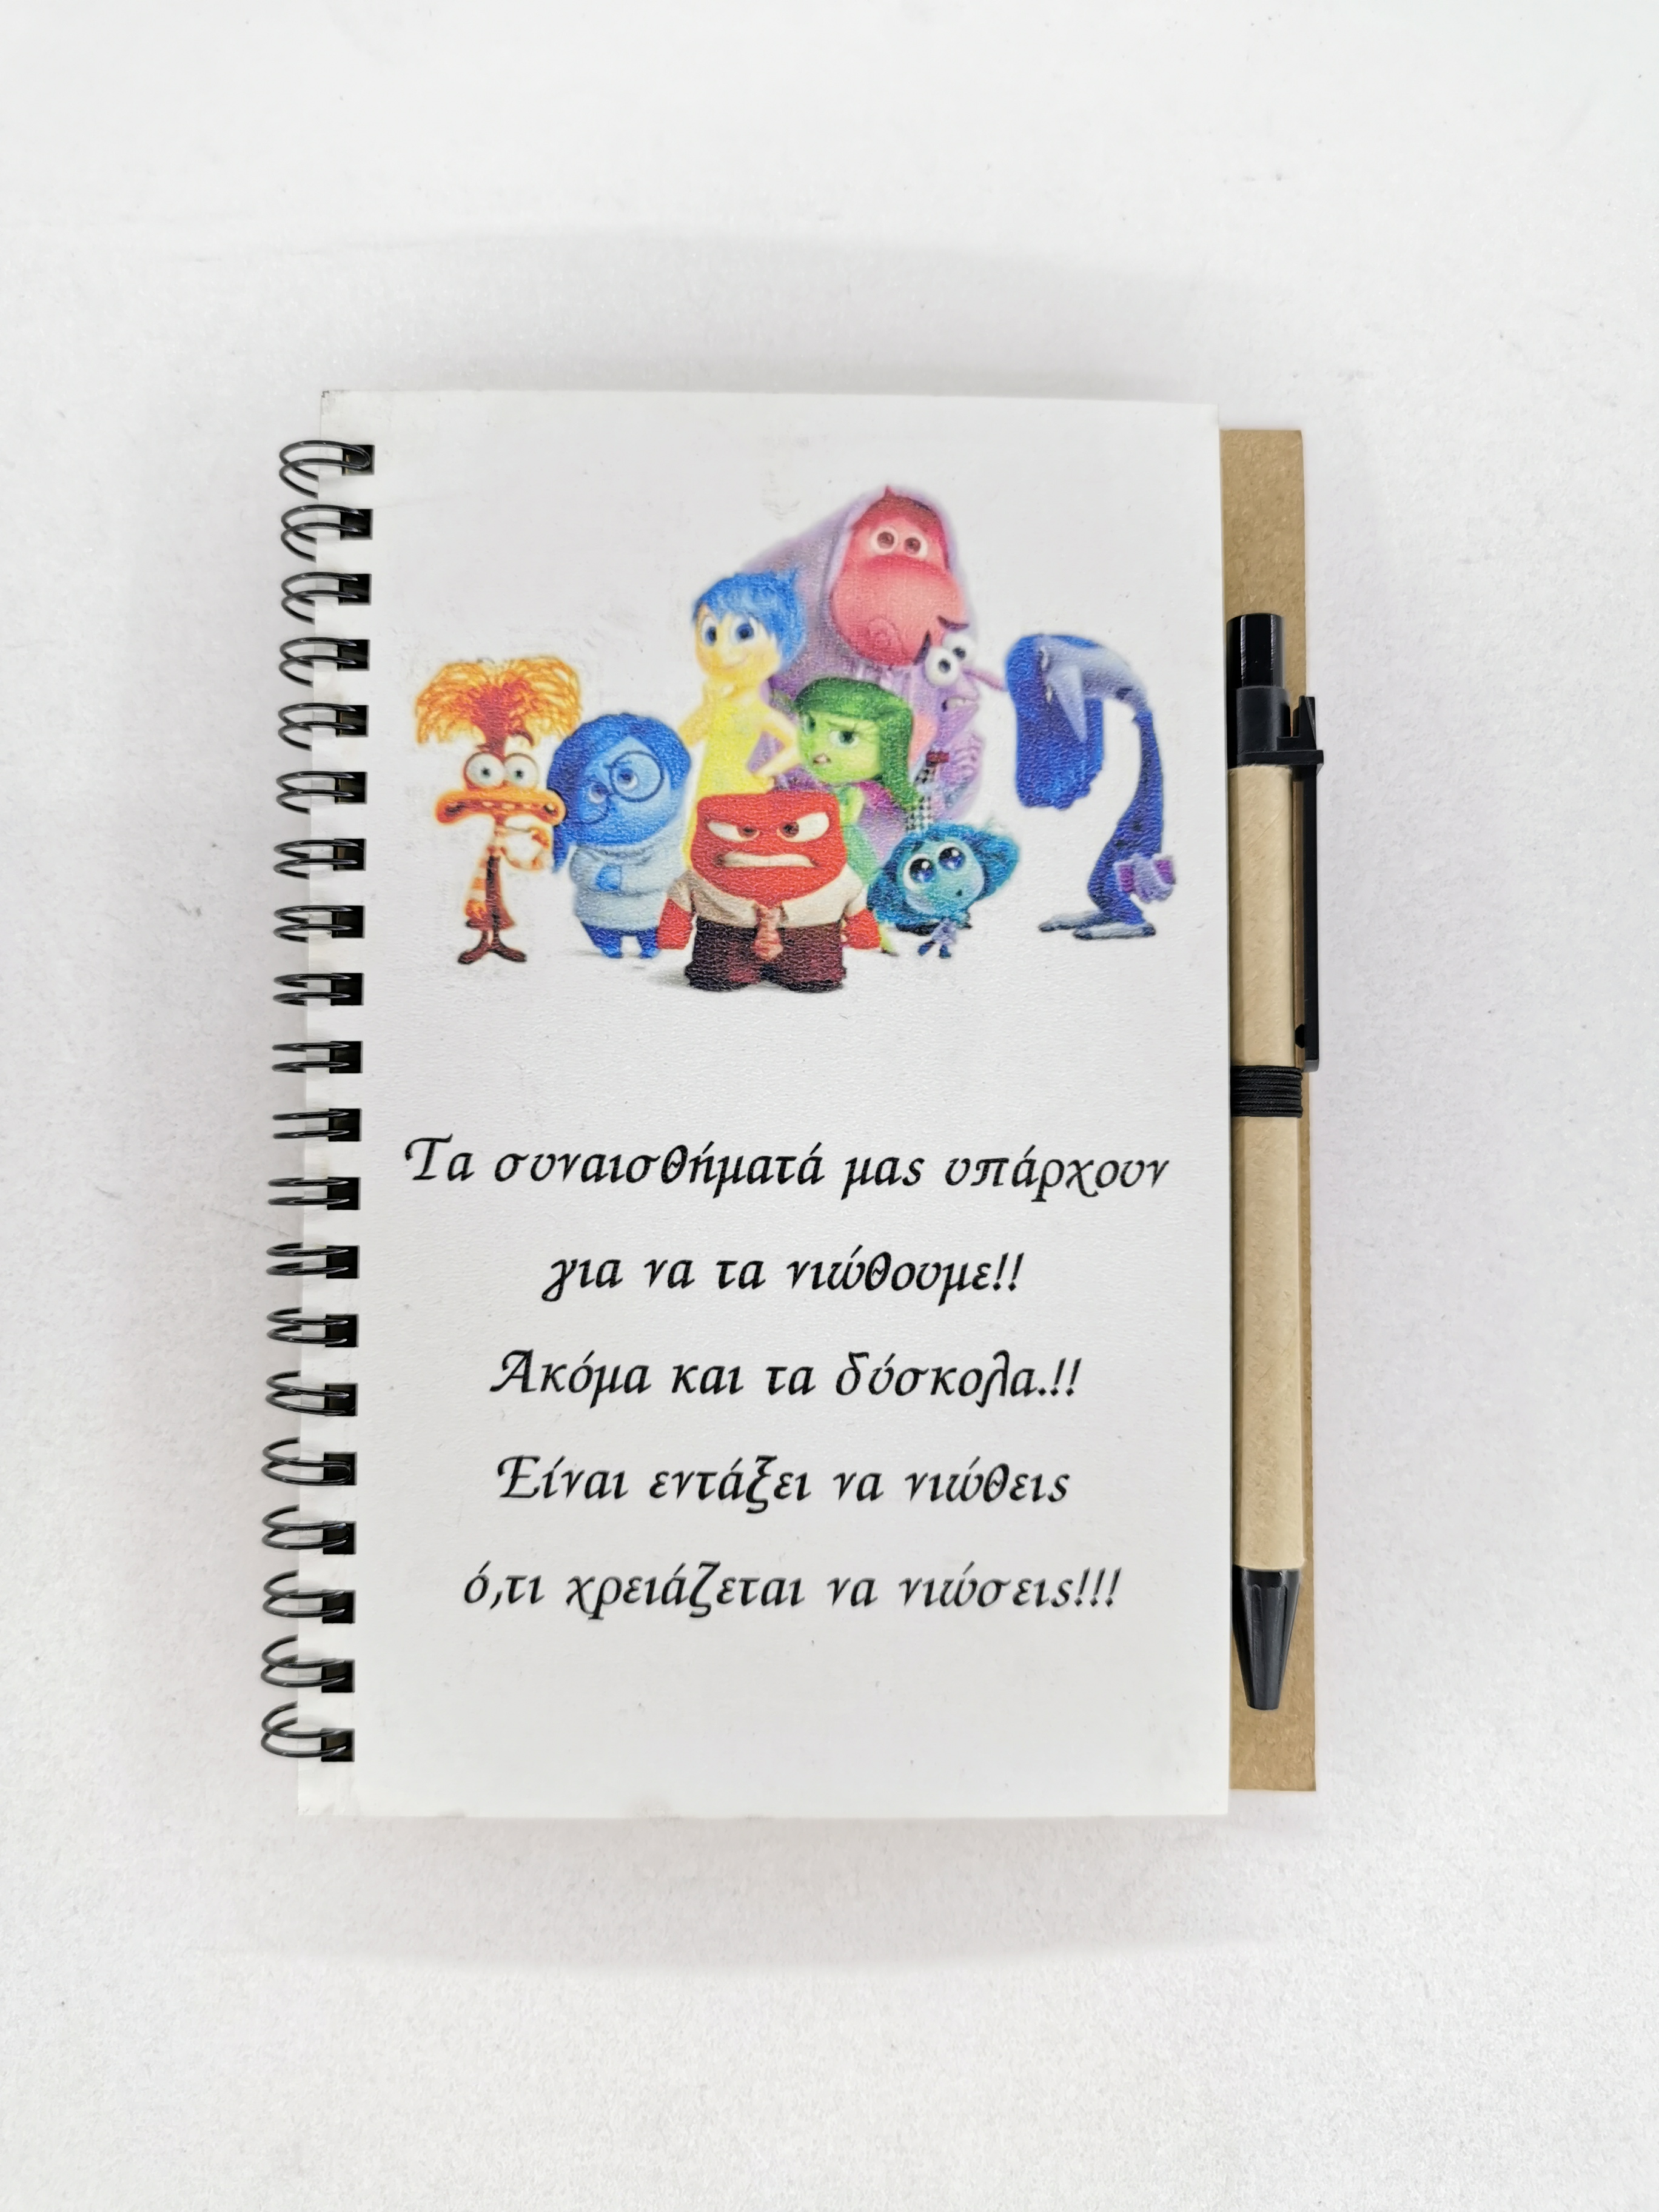 Τα συναισθήματά μας υπάρχουν
για να τα νιώθουμε!!
Ακόμα και τα δύσκολα.!!
Είναι εντάξει να νιώθεις
ό,τι χρειάζεται να νιώσεις!!!